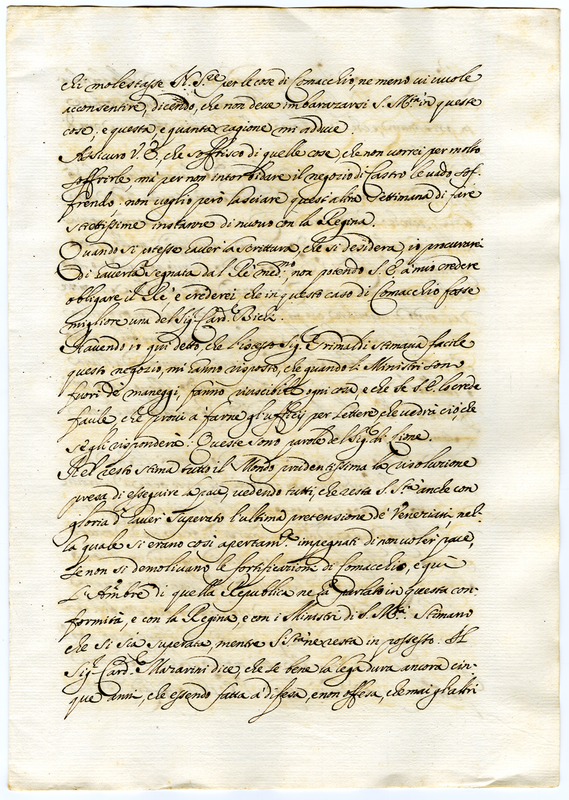 chi molestasse N. S.re per le cose di Comacchio, ne meno vi vuole
acconsentire, dicendo, che non deve imbarazzarsi S. M.tà in queste
cose, e questa, e quanta ragione mi adduce
Assicuro V. E. che soffrisco di quelle cose, che non vorrei per molto
soffrirle, mà per non intorbidare il negozio di Castro le vado sof-
frendo. non voglio però lasciare quest'altra settimana di fare
strettissime instanze di nuovo con la Regina.
Quando si potesse haver la scrittura, che si desidera, io procurarei
di haverla segnata dal Rè med.mo, non potendo S. E. à mio credere
obligare il Rè, e crederei, che in questo caso di Comacchio fosse
migliore una del Sig. Card. Bichi.
Havendo io qui detto, che l'istesso Sig. Grimaldi stimava facile
questo negozio, mi hanno risposto, che quando li Ministri sono
fuori de' maneggi, fanno riuscibile ogni cosa, e che se S. E. lo crede
facile, che provi à farne gl'uffizij per lettere, che vedrà ciò, che
se gli risponderà: Queste sono parole del Sig. di Lione.
Nel resto stima tutto il Mondo prudentissima la risoluzione
presa di esseguire la pace, vedendo tutti, che resta S. S.tà anche con
gloria d'haver superato l'ultima pretensione de' Veneziani, nel-
la quale si erano così apertam.te impegnati di non voler pace,
se non si demolivano le fortificazioni di Comacchio, e quì
l'Amb.re di quella Republica ne hà parlato in questa con-
formità, e con la Regina, e con i Ministri di S. M.tà. Stimano
che si sia superata, mentre S. S.tà ne resta in possesso. Il
Sig. Card. Mazarini dice, che se bene la lega dura ancora cin-
que anni, che essendo fatta a difesa, e non offesa, che mai gl'altri